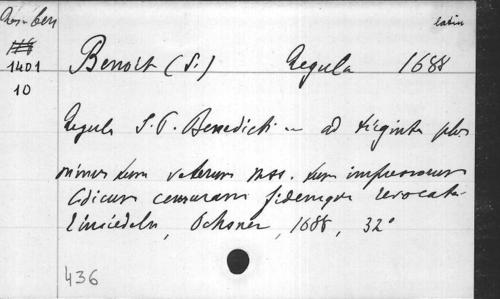 latin
1401
10
Benoit (S.) Regula 1688
Regula S. P. Benedicti ... ad triginta plus
minus tum veterum mss. tum impressorum
Codicum censuram fidemque revocata
Einsiedeln, Ochsner, 1688, 32°
436